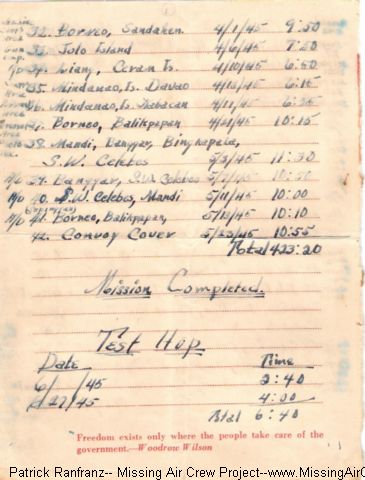 32. Borneo, Sandaken 4/1/45 9:50
33. Jolo Island 4/6/45 7:50
34. Liang, Ceram Is. 4/10/45 6:50
35. Mindanao, Is. Davao 4/16/45 6:15
36. Mindanao, Is. Kabacan 4/11/45
37. Borneo, Balikpapan 4/21/45 10:15
38. Mandi, Langgar,
S.W. Celebes 5/3/45 11:30
39. S.W. Celebes 5/7/45
N/O 40. S.W. Celebes, Mandi 5/11/45 10:00
N/O 41. Borneo, Balikpapan, 5/18/45 10:10
42. Convoy Cover 5/23/45 10:55
Total 423:20
Mission Completed.
Test Hop
Date Time
6/ /45 2:40
/27/45 4:00
Total 6:40
Freedom exists only where the people take care of the
government.—Woodrow Wilson
Patrick Ranfranz-- Missing Air Crew Project--www.MissingAirC